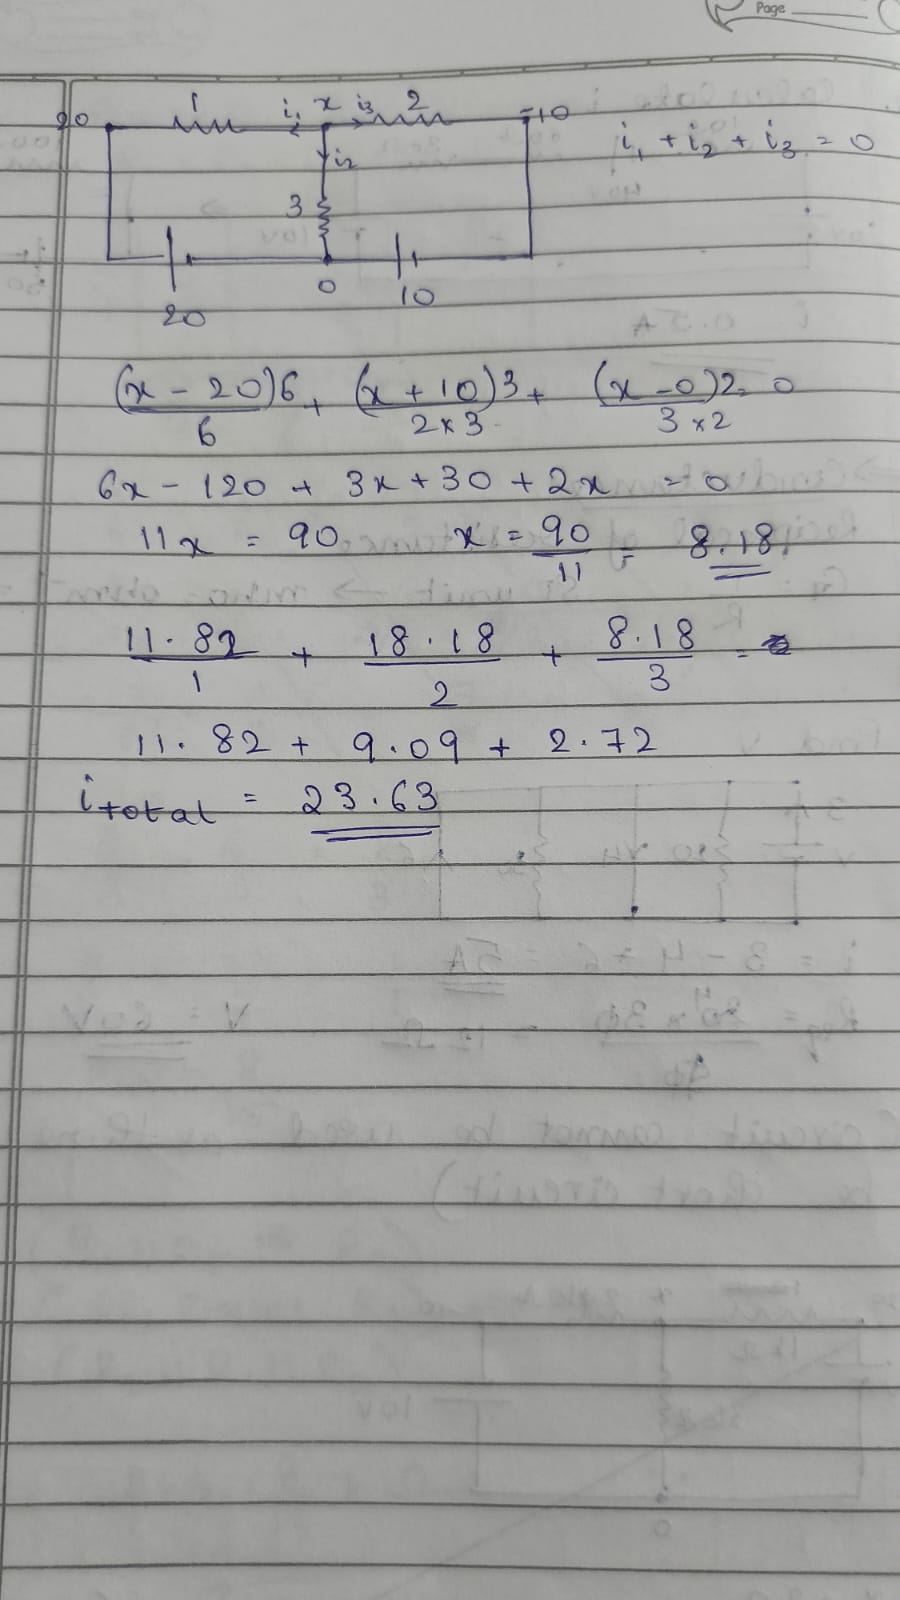 Page
20 1 i₁ x i₃ 2 -10
i₁ + i₂ + i₃ = 0
i₂
3
0
20
10
(x - 20)6/6 + (x + 10)3/2×3 + (x - 0)2/3×2 = 0
6x - 120 + 3x + 30 + 2x = 0
11x = 90 x = 90/11 = 8.18
11.82/1 + 18.18/2 + 8.18/3 =
11.82 + 9.09 + 2.72
i total = 23.63